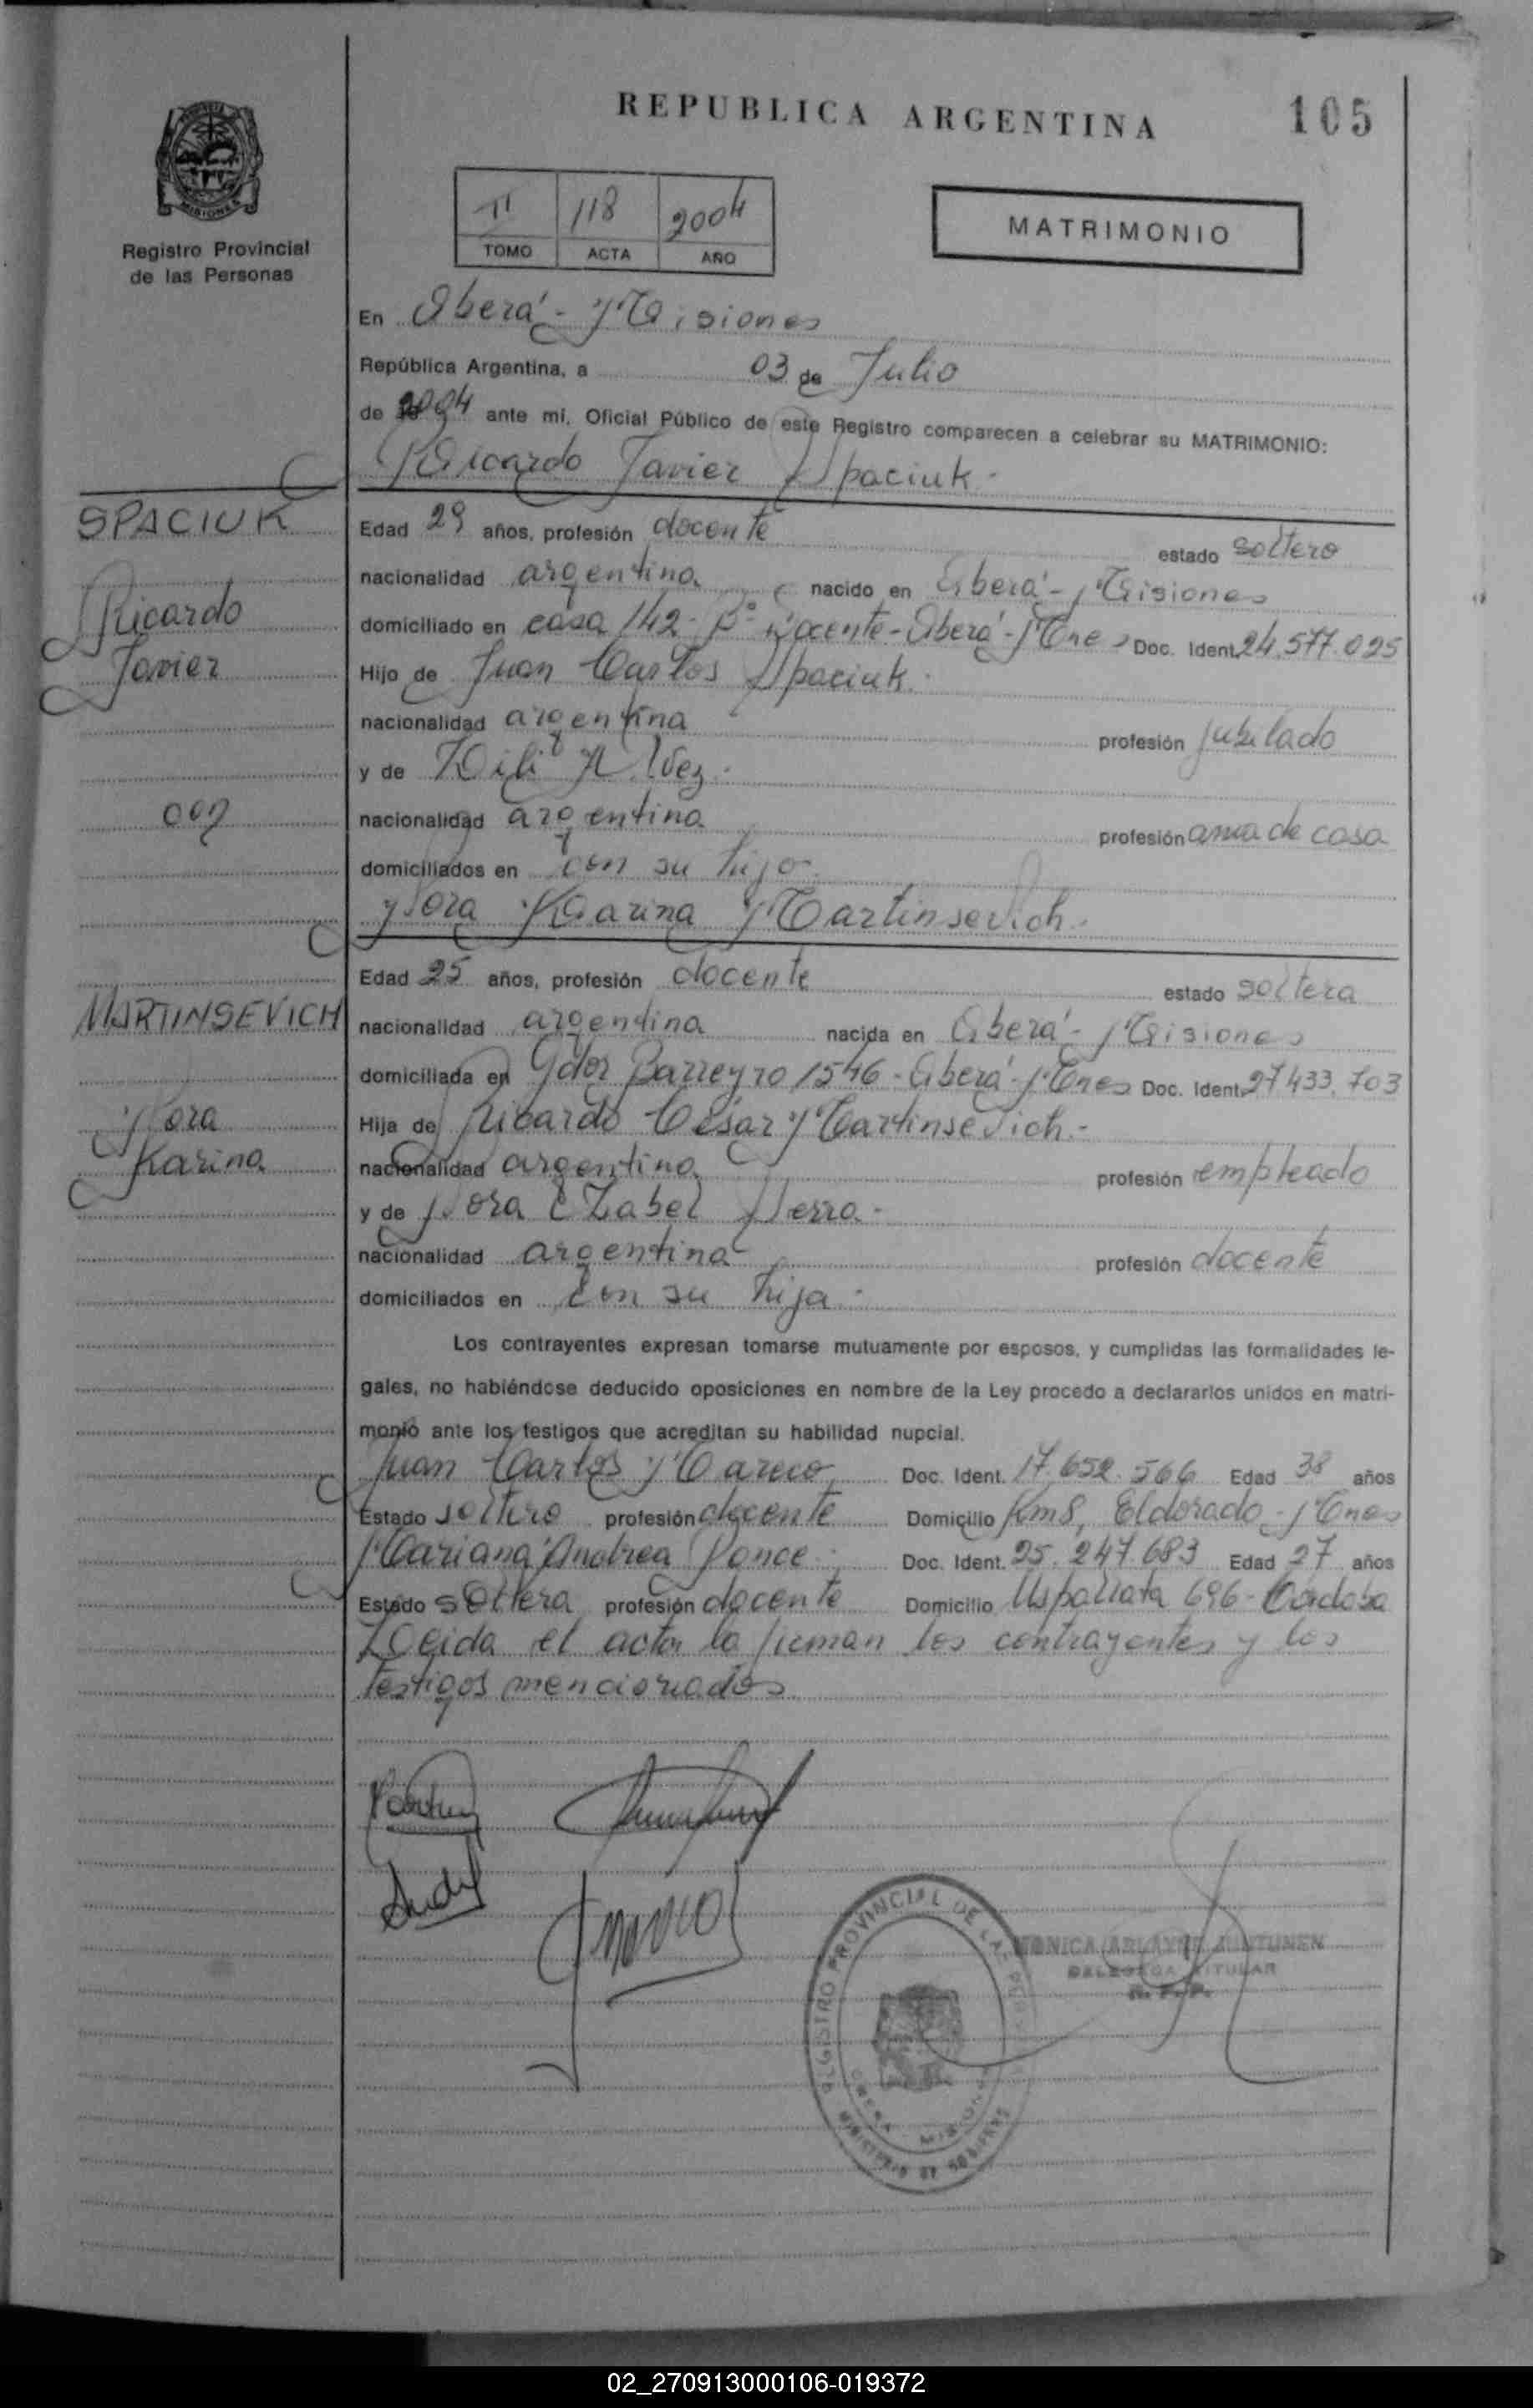 REPUBLICA ARGENTINA
105
Registro Provincial
de las Personas
MISIONES
II 118 2004
TOMO ACTA AÑO
MATRIMONIO
En Oberá - Misiones
República Argentina, a 03 de Julio
de 2004 ante mi, Oficial Público de este Registro comparecen a celebrar su MATRIMONIO:
Ricardo Javier Spaciuk.-
SPACIUK
Ricardo
Javier
007
Edad 29 años, profesión docente estado soltero
nacionalidad argentina nacido en Oberá - Misiones
domiciliado en casa 142 - Bº Docente - Oberá - Mnes Doc. Ident. 24.577.025
Hijo de Juan Carlos Spaciuk.-
nacionalidad argentina profesión jubilado
y de
nacionalidad argentina profesión ama de casa
domiciliados en con su hijo.
y Nora Karina Martinsevich.-
MARTINSEVICH
Nora
Karina
Edad 25 años, profesión docente estado soltera
nacionalidad argentina nacida en Oberá - Misiones
domiciliada en Gdor Barreyro 1546 - Oberá - Mnes Doc. Ident. 27433.703
Hija de Ricardo César Martinsevich.-
nacionalidad argentina profesión empleado
y de Nora Izabel Serra.-
nacionalidad argentina profesión docente
domiciliados en con su hija.-
Los contrayentes expresan tomarse mutuamente por esposos, y cumplidas las formalidades le-
gales, no habiéndose deducido oposiciones en nombre de la Ley procedo a declararlos unidos en matri-
monio ante los testigos que acreditan su habilidad nupcial.
Juan Carlos Mareco Doc. Ident. 17.652.566 Edad 38 años
Estado soltero profesión docente Domicilio Km8, Eldorado - Mnes
Mariana Andrea Ponce.- Doc. Ident. 25.247.683 Edad 27 años
Estado soltera profesión docente Domicilio Uspallata 696 - Córdoba
Leida el acta la firman los contrayentes y los
testigos mencionados
REGISTRO PROVINCIAL DE LAS
OBERA MISIONES
MINISTERIO DE GOBIERNO
MONICA JUNTUNEN
DELEGADA TITULAR
R. P. P.
02_270913000106-019372